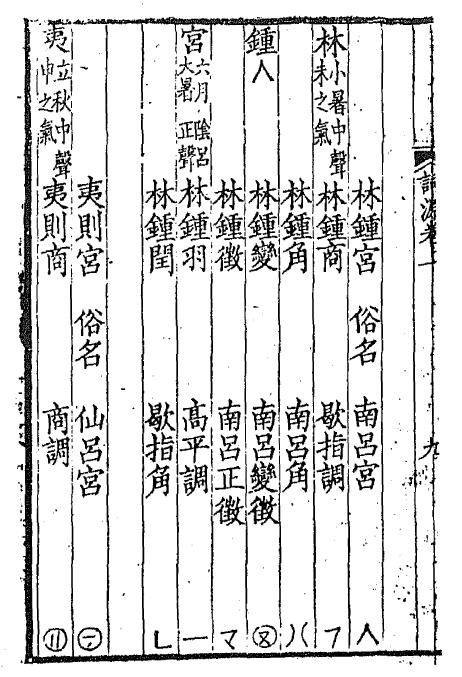 詞源卷一 九
林鍾宮 俗名 南呂宮 人
林小暑中聲未之氣 林鍾商 歇指調 フ
林鍾角 南呂角 八
鍾人 林鍾變 南呂變徵 ㊇
林鍾徵 南呂正徵 マ
宮六月陰呂大暑正聲 林鍾羽 高平調 一
林鍾閏 歇指角 ㄴ
夷則宮 俗名 仙呂宮 ㋥
夷立秋中聲申之氣 夷則商 商調